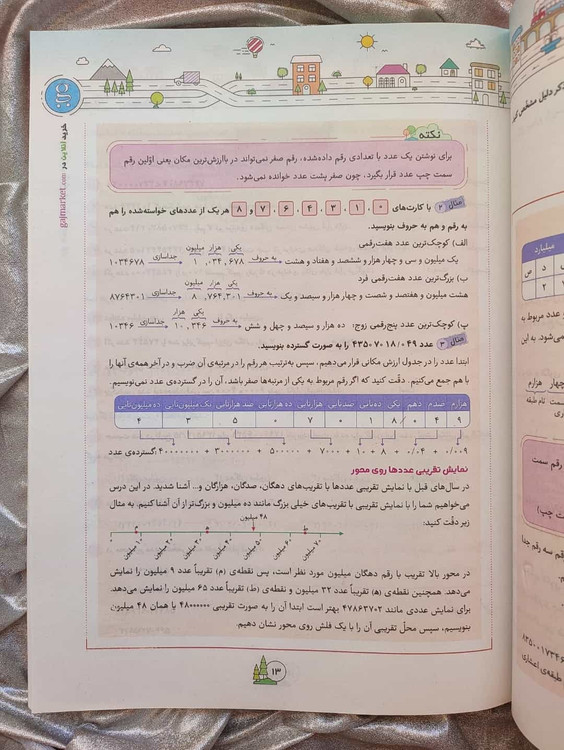 خرید آنلاین در gajmarket.com
نکته
برای نوشتن یک عدد با تعدادی رقم داده‌شده، رقم صفر نمی‌تواند در باارزش‌ترین مکان یعنی اوّلین رقم
سمت چپ عدد قرار بگیرد، چون صفر پشت عدد خوانده نمی‌شود.
مثال ۲ با کارت‌های ۰ ، ۱ ، ۳ ، ۴ ، ۶ ، ۷ و ۸ هر یک از عددهای خواسته‌شده را هم
به رقم و هم به حروف بنویسید.
الف) کوچک‌ترین عدد هفت‌رقمی
یک میلیون و سی و چهار هزار و ششصد و هفتاد و هشت به حروف ۱,۰۳۴,۶۷۸ میلیون هزار یکی جداسازی ۱۰۳۴۶۷۸
ب) بزرگ‌ترین عدد هفت‌رقمی فرد
هشت میلیون و هفتصد و شصت و چهار هزار و سیصد و یک به حروف ۸,۷۶۴,۳۰۱ میلیون هزار یکی جداسازی ۸۷۶۴۳۰۱
پ) کوچک‌ترین عدد پنج‌رقمی زوج: ده هزار و سیصد و چهل و شش به حروف ۱۰,۳۴۶ هزار یکی جداسازی ۱۰۳۴۶
مثال ۳ عدد ۴۳۵۰۷۰۱۸/۰۴۹ را به صورت گسترده بنویسید.
ابتدا عدد را در جدول ارزش مکانی قرار می‌دهیم. سپس به‌ترتیب هر رقم را در مرتبه‌ی آن ضرب و در آخر همه‌ی آنها را
با هم جمع می‌کنیم. دقّت کنید که اگر رقم مربوط به یکی از مرتبه‌ها صفر باشد، آن را در گسترده‌ی عدد نمی‌نویسیم.
ده میلیون‌تایی یک میلیون‌تایی صد هزارتایی ده هزارتایی هزارتایی صدتایی ده‌تایی یکی دهم صدم هزارم
۴ ۳ ۵ ۰ ۷ ۰ ۱ ۸ / ۰ ۴ ۹
گسترده‌ی عدد: ۴۰۰۰۰۰۰۰ + ۳۰۰۰۰۰۰ + ۵۰۰۰۰۰ + ۷۰۰۰ + ۱۰ + ۸ + ۰/۰۴ + ۰/۰۰۹
نمایش تقریبی عددها روی محور
در سال‌های قبل با نمایش تقریبی عددها با تقریب‌های دهگان، صدگان، هزارگان و... آشنا شدید. در این درس
می‌خواهیم شما را با نمایش تقریبی با تقریب‌های خیلی بزرگ مانند ده میلیون و بزرگ‌تر از آن آشنا کنیم. به مثال
زیر دقّت کنید:
۴۸ میلیون
م ه ط
۱۰ میلیون ۲۰ میلیون ۳۰ میلیون ۴۰ میلیون ۵۰ میلیون ۶۰ میلیون ۷۰ میلیون
در محور بالا تقریب با رقم دهگان میلیون مورد نظر است، پس نقطه‌ی (م) تقریباً عدد ۹ میلیون را نمایش
می‌دهد. همچنین نقطه‌ی (ه) تقریباً عدد ۳۲ میلیون و نقطه‌ی (ط) تقریباً عدد ۶۵ میلیون را نمایش می‌دهد.
برای نمایش عددی مانند ۴۷۸۶۳۷۰۲ بهتر است ابتدا آن را به صورت تقریبی ۴۸۰۰۰۰۰۰ یا همان ۴۸ میلیون
بنویسیم، سپس محلّ تقریبی آن را با یک فلش روی محور نشان دهیم.
۱۳
میلیارد
ص د
۲
و عدد مربوط به
می‌شود. به این
چهار هزارم
رقم سمت
سمت چپ)
۸۳۵۰۰۱۷۳۴۶